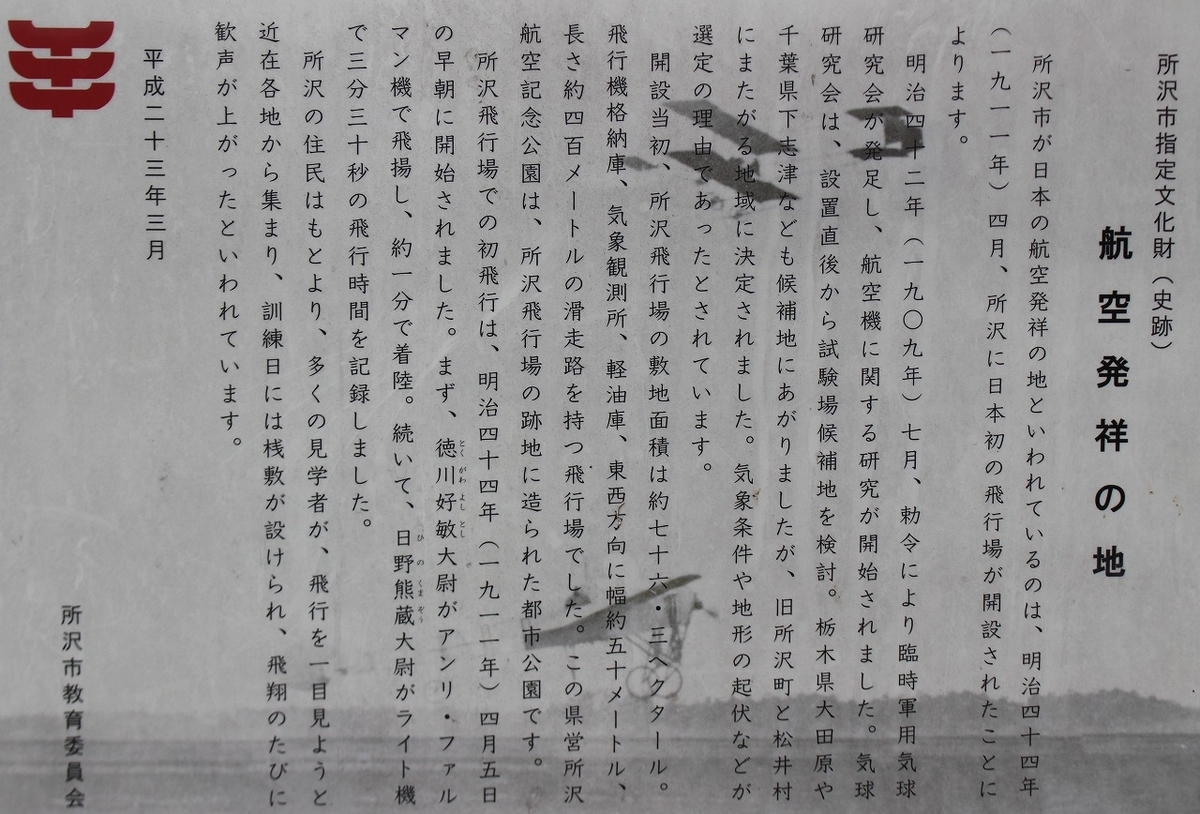 所沢市指定文化財（史跡）
航空発祥の地
所沢市が日本の航空発祥の地といわれているのは、明治四十四年
（一九一一年）四月、所沢に日本初の飛行場が開設されたことに
よります。
明治四十二年（一九〇九年）七月、勅令により臨時軍用気球
研究会が発足し、航空機に関する研究が開始されました。気球
研究会は、設置直後から試験場候補地を検討。栃木県大田原や
千葉県下志津なども候補地にあがりましたが、旧所沢町と松井村
にまたがる地域に決定されました。気象条件や地形の起伏などが
選定の理由であったとされています。
開設当初、所沢飛行場の敷地面積は約七十六・三ヘクタール。
飛行機格納庫、気象観測所、軽油庫、東西方向に幅約五十メートル、
長さ約四百メートルの滑走路を持つ飛行場でした。この県営所沢
航空記念公園は、所沢飛行場の跡地に造られた都市公園です。
所沢飛行場での初飛行は、明治四十四年（一九一一年）四月五日
の早朝に開始されました。まず、徳川好敏大尉がアンリ・ファル
マン機で飛揚し、約一分で着陸。続いて、日野熊蔵大尉がライト機
で三分三十秒の飛行時間を記録しました。
所沢の住民はもとより、多くの見学者が、飛行を一目見ようと
近在各地から集まり、訓練日には桟敷が設けられ、飛翔のたびに
歓声が上がったといわれています。
平成二十三年三月
所沢市教育委員会